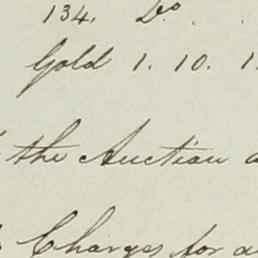 134. Do. .
Gold 1. 10.
the Auction
Charges for